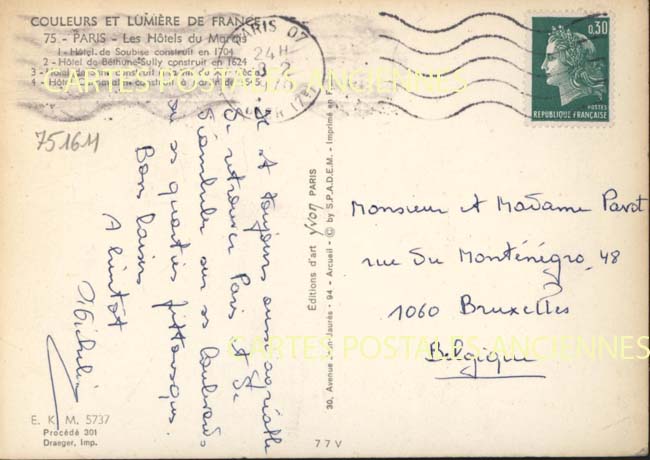 COULEURS ET LUMIÈRE DE FRANCE
75 - PARIS - Les Hôtels du Marais
1 - Hôtel de Soubise construit en 1704
2 - Hôtel de Béthune-Sully construit en 1624
PARIS 07
24H
3-2
0,30
POSTES
REPUBLIQUE FRANÇAISE
751611
Il est toujours aussi agréable
de retrouver Paris et de
déambuler sur ses boulevards
ou ses quartiers pittoresques.
Bons baisers
A bientôt
Editions d'art yvon PARIS
30, Avenue Jean-Jaurès - 94 - Arcueil - © by S.P.A.D.E.M. - Imprimé en
Monsieur et Madame Parot
rue du Monténégro, 48
1060 Bruxelles
Belgique
CARTES POSTALES ANCIENNES
CARTES POSTALES ANCIENNES
E. K. M. 5737
Procédé 301
Draeger, Imp.
77V